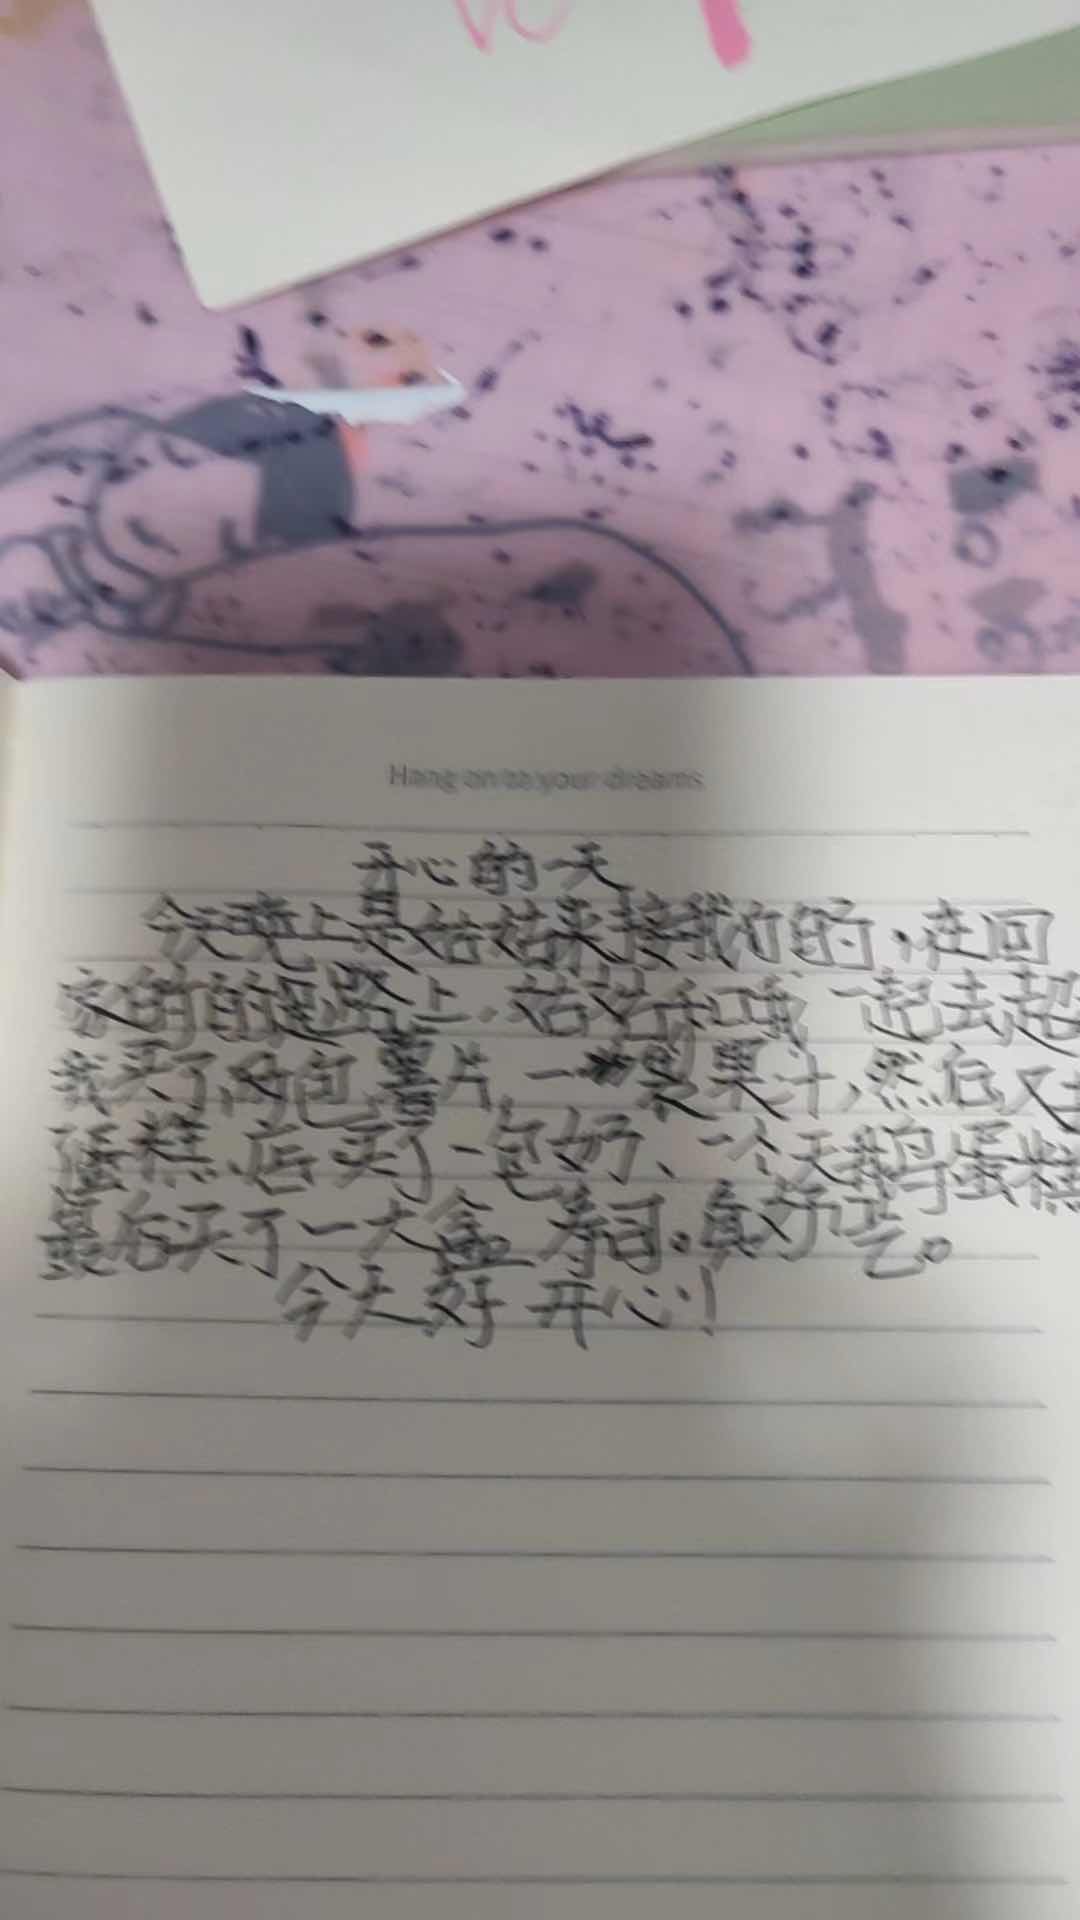 Hang on to your dreams
开心的一天
今天晚上是姑姑来接我们的,在回
家的的道路上.姑姑和我一起去超
我买了两包薯片,一 果汁,然后又去
了蛋糕店买了一包奶、一个天鹅蛋糕
最后买了一大盒寿司。真好吃。
今天好开心!